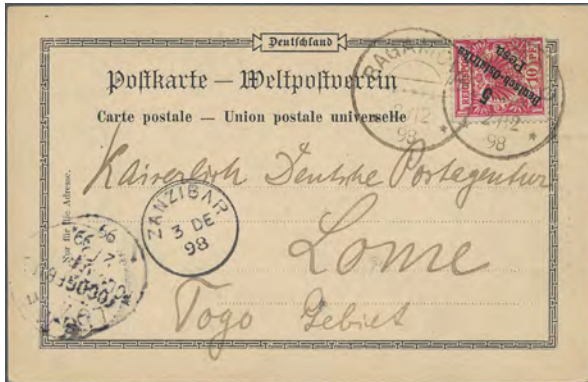 Deutschland
Postkarte – Weltpostverein
Carte postale — Union postale universelle
BAGAMOYO
2/12
98
2/12
98
10 PF
Deutsch-Ostafrika
5
Pesa
Kaiserlich Deutsche Postagentur
ZANZIBAR
3 DE
98
Lome
Togo Gebiet
Nur für die Adresse.
99